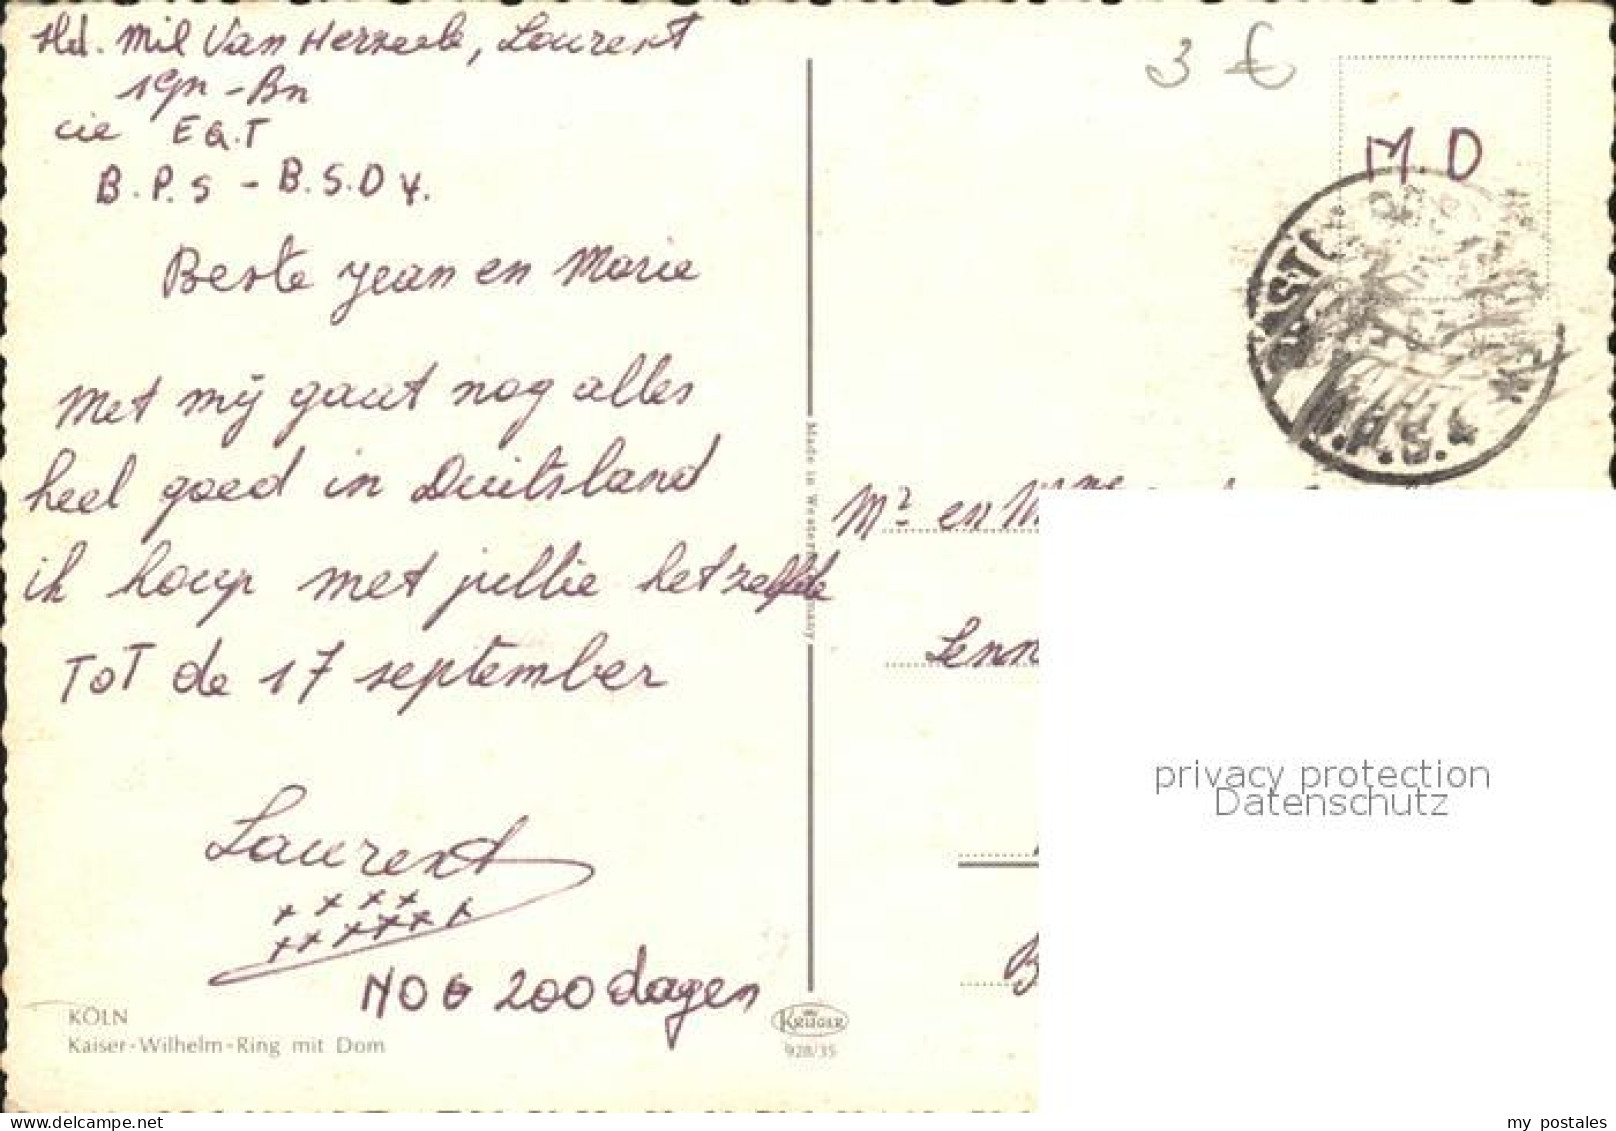 Mil Van Laurent
1 Gn - Bn
cie EQ.T
B.P.S - B.S.D 4.
Beste Jean en Maria
Met mij gaat nog alles
heel goed in Duitsland
ik hoop met jullie hetzelfde
Tot de 17 september
Laurent
x x x x
x x x x x x x
NOG 200 dagen
KÖLN
Kaiser-Wilhelm-Ring mit Dom
Made in Western Germany
KRÜGER
928/35
3 €
M.D
P.S.4
Mr en Mme
Lenn
B
privacy protection
Datenschutz
delcampe.net
my_postales